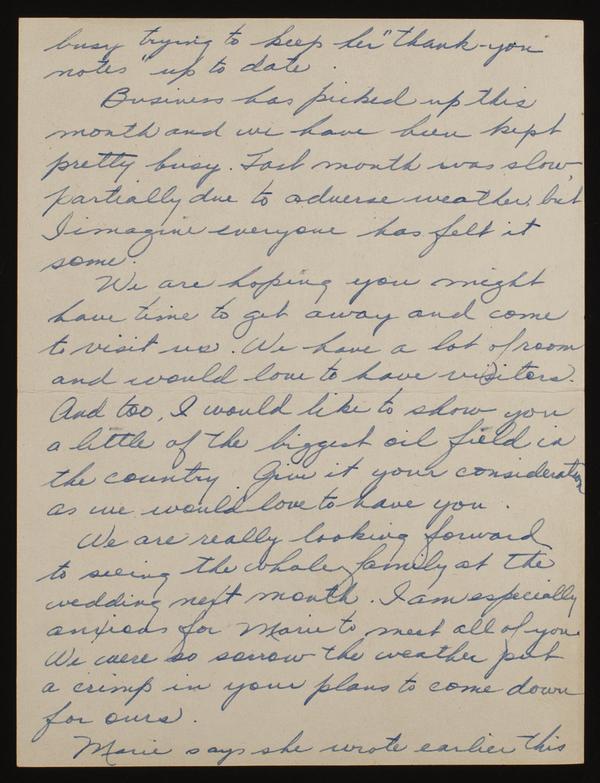 busy trying to keep her "thank-you
notes" up to date.
Business has picked up this
month and we have been kept
pretty busy. Last month was slow
partially due to adverse weather, but
I imagine everyone has felt it
some.
We are hoping you might
have time to get away and come
to visit us. We have a lot of room
and would love to have visitors.
And too, I would like to show you
a little of the biggest oil field in
the country. Give it your consideration
as we would love to have you.
We are really looking forward
to seeing the whole family at the
wedding next month. I am especially
anxious for Marie to meet all of you.
We were so sorrow the weather put
a crimp in your plans to come down
for ours.
Marie says she wrote earlier this